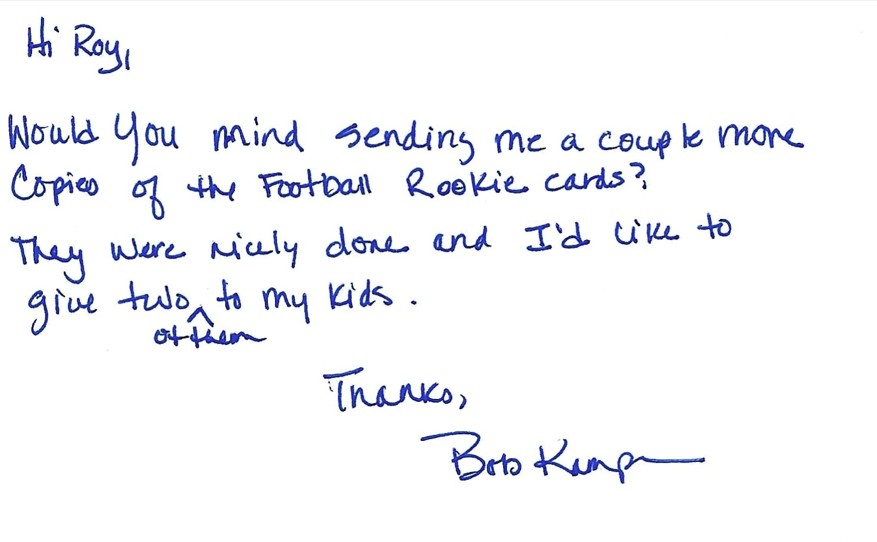 Hi Roy,
Would you mind sending me a couple more
Copies of the Football Rookie cards?
They were nicely done and I'd like to
give two ^ to my kids.
of them
Thanks,
Bob Kamp